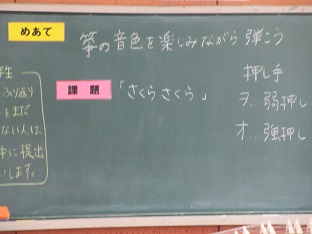 めあて
箏の音色を楽しみながら弾こう
課題
「さくらさくら」
押し手
ヲ…弱押し
オ…強押し
ふり返り
をまだ
ない人は、
中に提出
します。